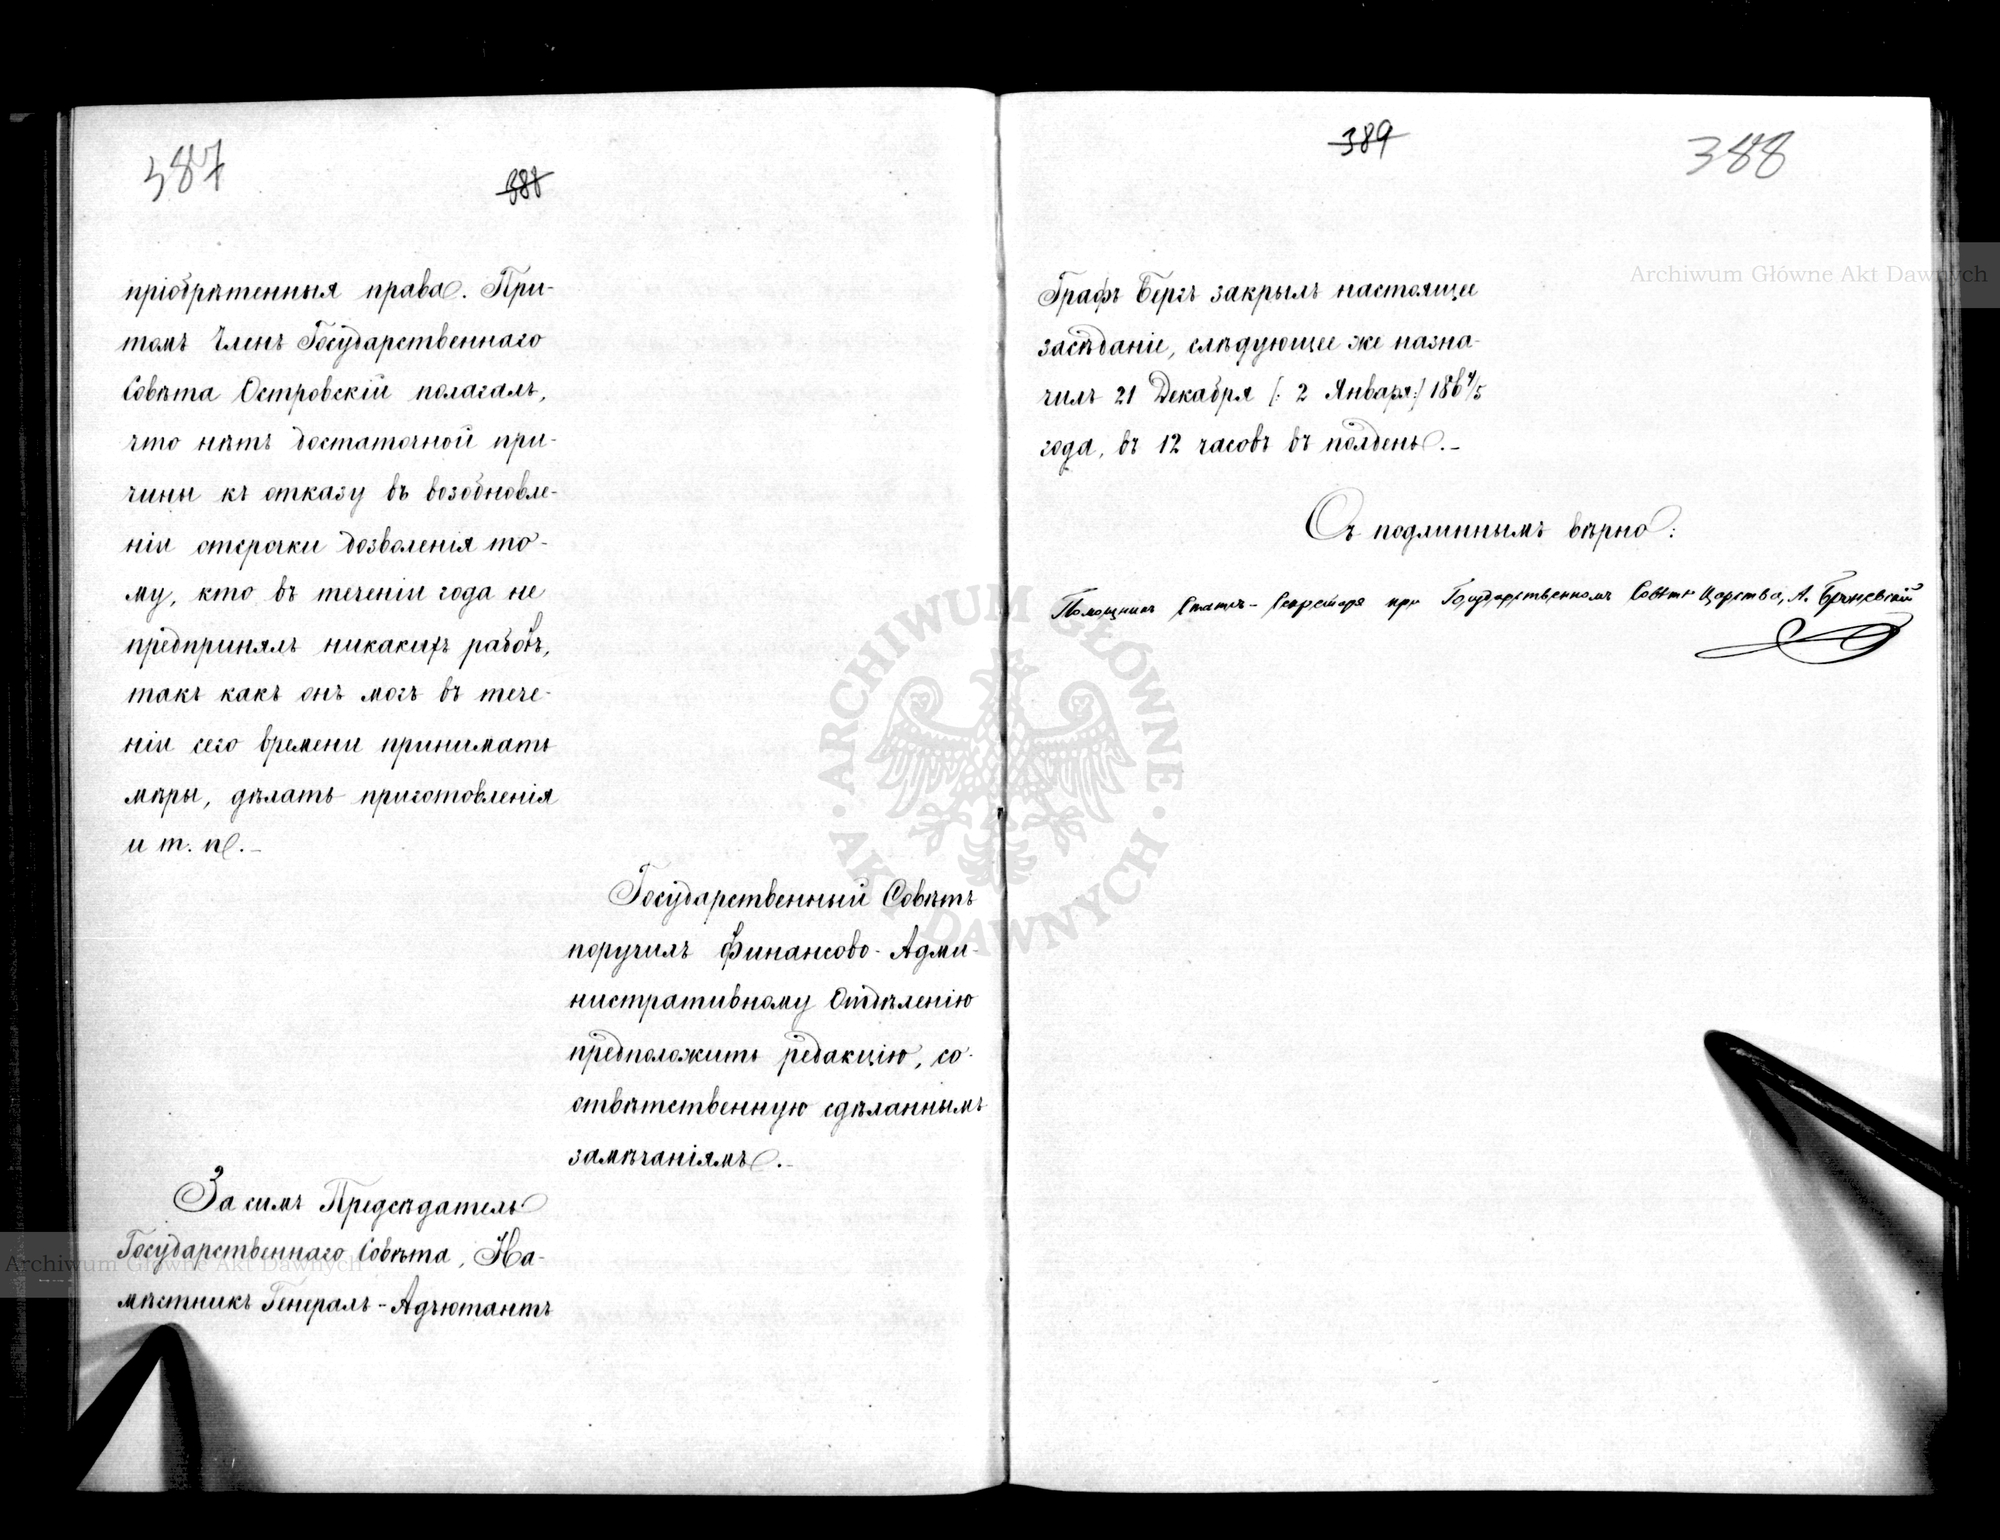 387
388
пріобрѣтенныя права. При-
томъ Членъ Государственнаго
Совѣта Островскій полагалъ,
что нѣтъ достаточной при-
чины къ отказу въ возобновле-
ніи отсрочки дозволенія то-
му, кто въ теченіи года не
предпринялъ никакихъ работъ,
такъ какъ онъ могъ въ тече-
ніи сего времени принимать
мѣры, дѣлать приготовленія
и т. п.—
Государственный Совѣтъ
поручилъ Финансово-Адми-
нистративному Отдѣленію
предположить редакцію, со-
отвѣтственную сдѣланнымъ
замѣчаніямъ.—
За симъ Предсѣдатель
Государственнаго Совѣта, На-
мѣстникъ Генералъ-Адъютантъ
389
388
Графъ Бергъ закрылъ настоящее
засѣданіе, слѣдующее же назна-
чилъ 21 Декабря /: 2 Января :/ 186 4/5
года, въ 12 часовъ въ полдень.—
Съ подлиннымъ вѣрно:
Помощникъ Статсъ-Секретаря при Государственномъ Совѣтѣ Царства, А.
Archiwum Główne Akt Dawnych
Archiwum Główne Akt Dawnych
ARCHIWUM GŁÓWNE · AKT DAWNYCH ·